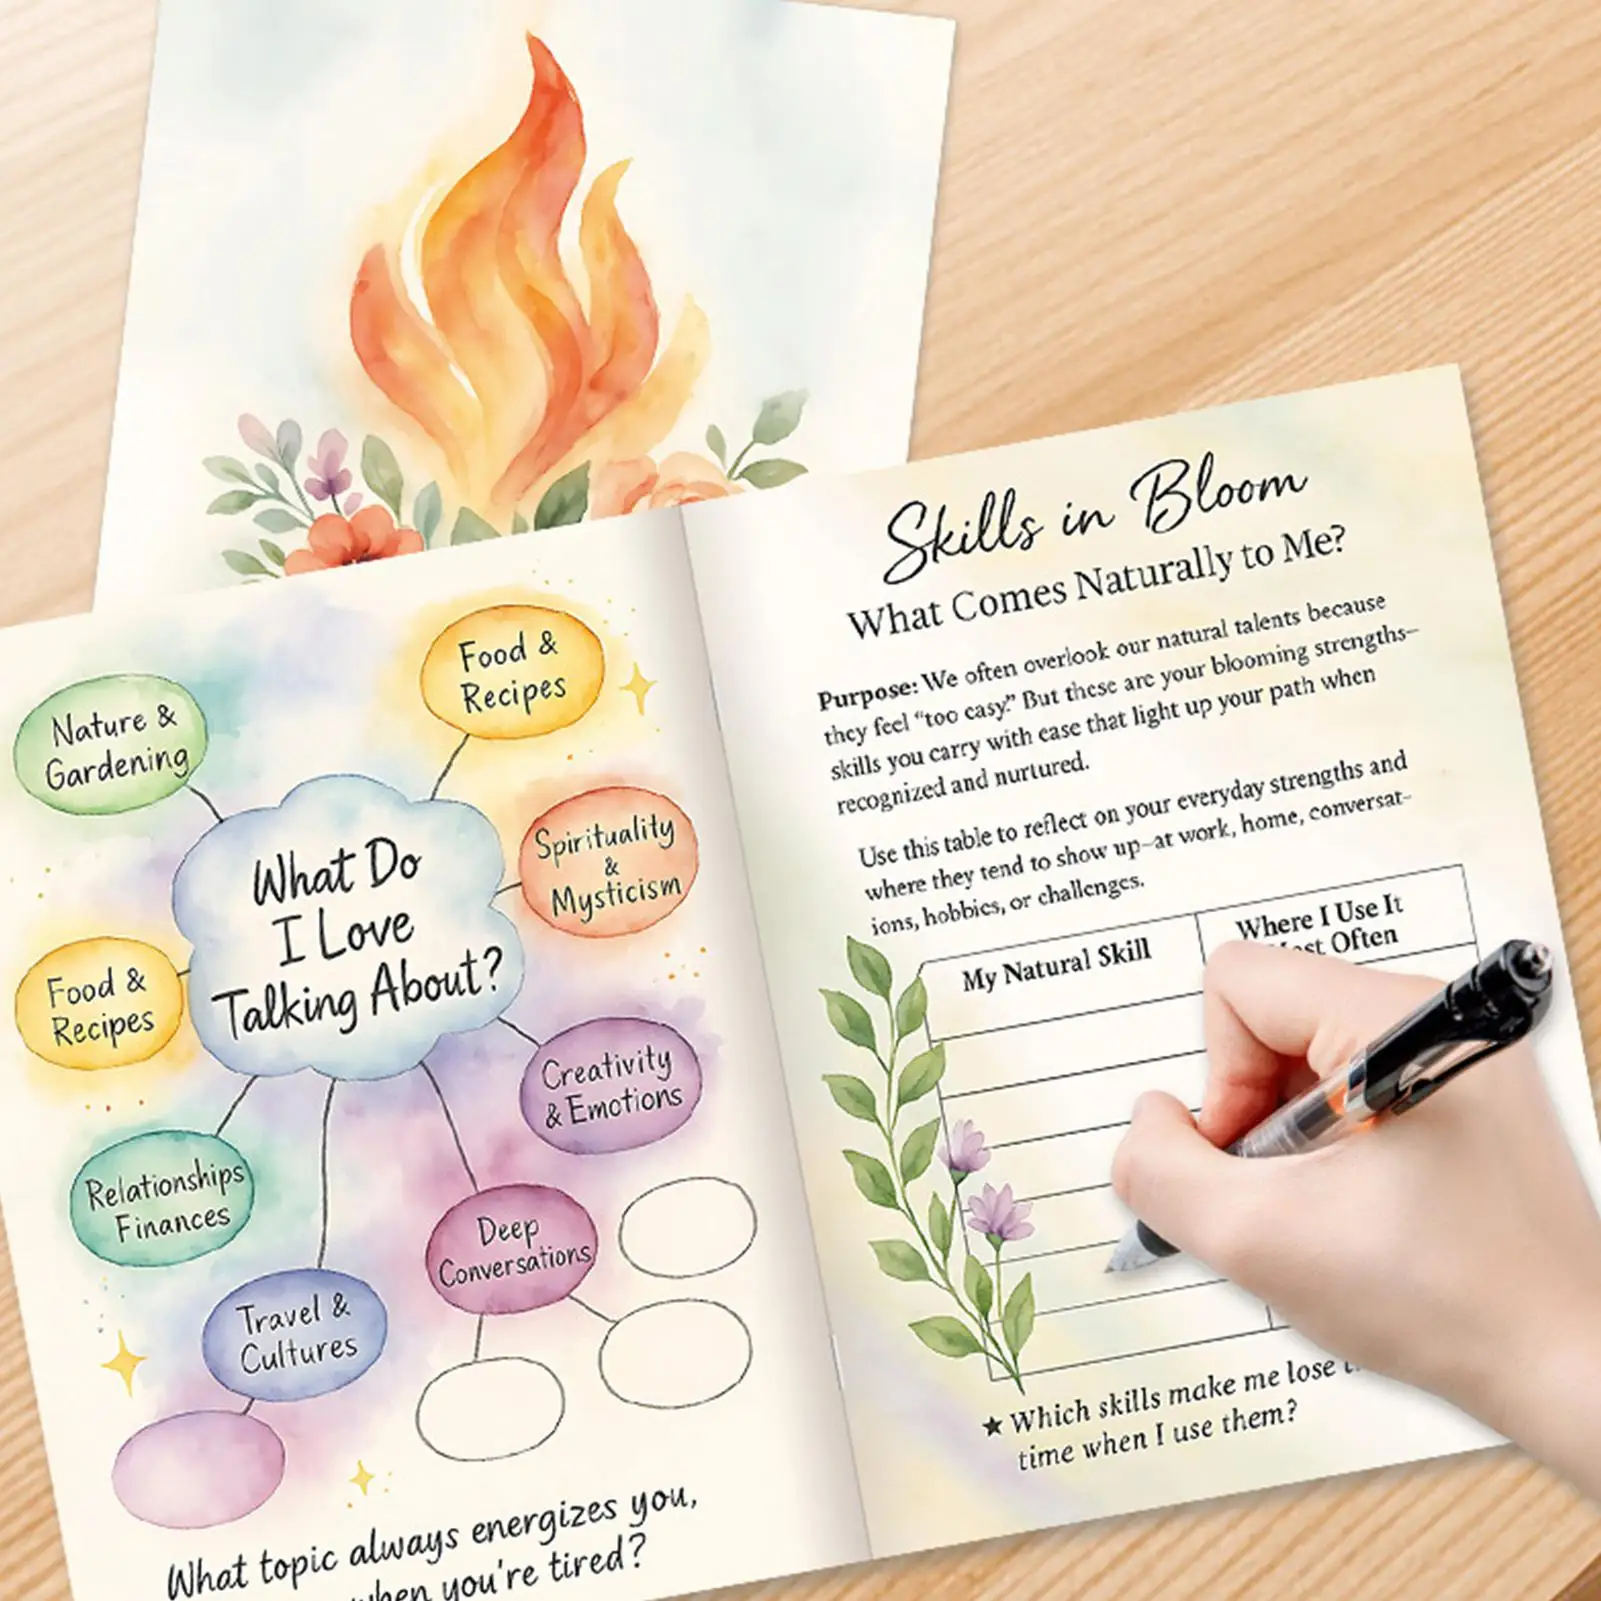 Nature &
Gardening
Food &
Recipes
What Do
I Love
Talking About?
Spirituality
&
Mysticism
Food &
Recipes
Creativity
& Emotions
Relationships
Finances
Deep
Conversations
Travel &
Cultures
What topic always energizes you,
when you're tired?
Skills in Bloom
What Comes Naturally to Me?
Purpose: We often overlook our natural talents because
they feel “too easy.” But these are your blooming strengths–
skills you carry with ease that light up your path when
recognized and nurtured.
Use this table to reflect on your everyday strengths and
where they tend to show up–at work, home, conversat–
ions, hobbies, or challenges.
My Natural Skill
Where I Use It
Often
★ Which skills make me lose
time when I use them?